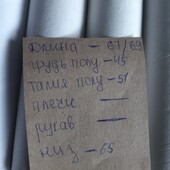 длина — 67/69
грудь полу — 45
талия полу — 51
плечи —
рукав —
низ — 65